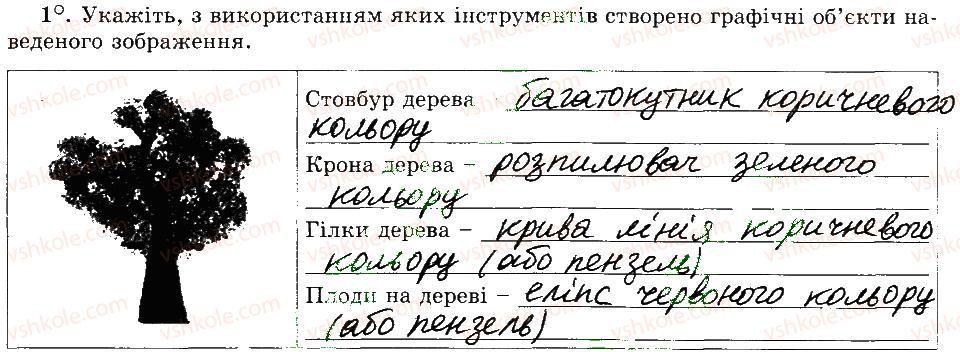 1°. Укажіть, з використанням яких інструментів створено графічні об’єкти на-
веденого зображення.
Стовбур дерева багатокутник коричневого
кольору
Крона дерева – розпилювач зеленого
кольору
Гілки дерева – крива лінія коричневого
кольору (або пензель)
Плоди на дереві – еліпс червоного кольору
(або пензель)